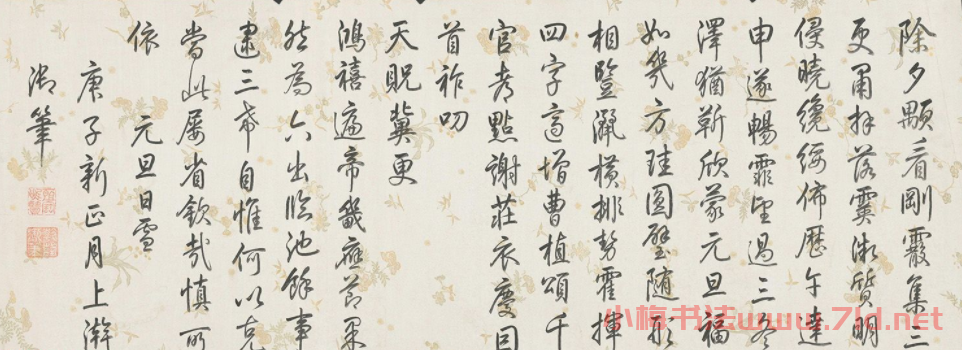 除夕顆看剛霰集三
更肅拜落霙微質明
侵曉纔綏佈歴午達
申遂暢霏望過三冬
澤猶靳欣蒙元旦福
如幾方珪圓璧随形
相豎灑橫排勢霍揮
四字增曹植頌千
官点謝莊衣慶同
首祚叨
天貺冀更
鴻禧遍帝畿應節果
然為六出臨池餘事
逮三希自惟何以克
當此屢省欽哉慎所
依 元旦日雪
庚子新正月上澣
御筆
小梅书法www.7ld.net